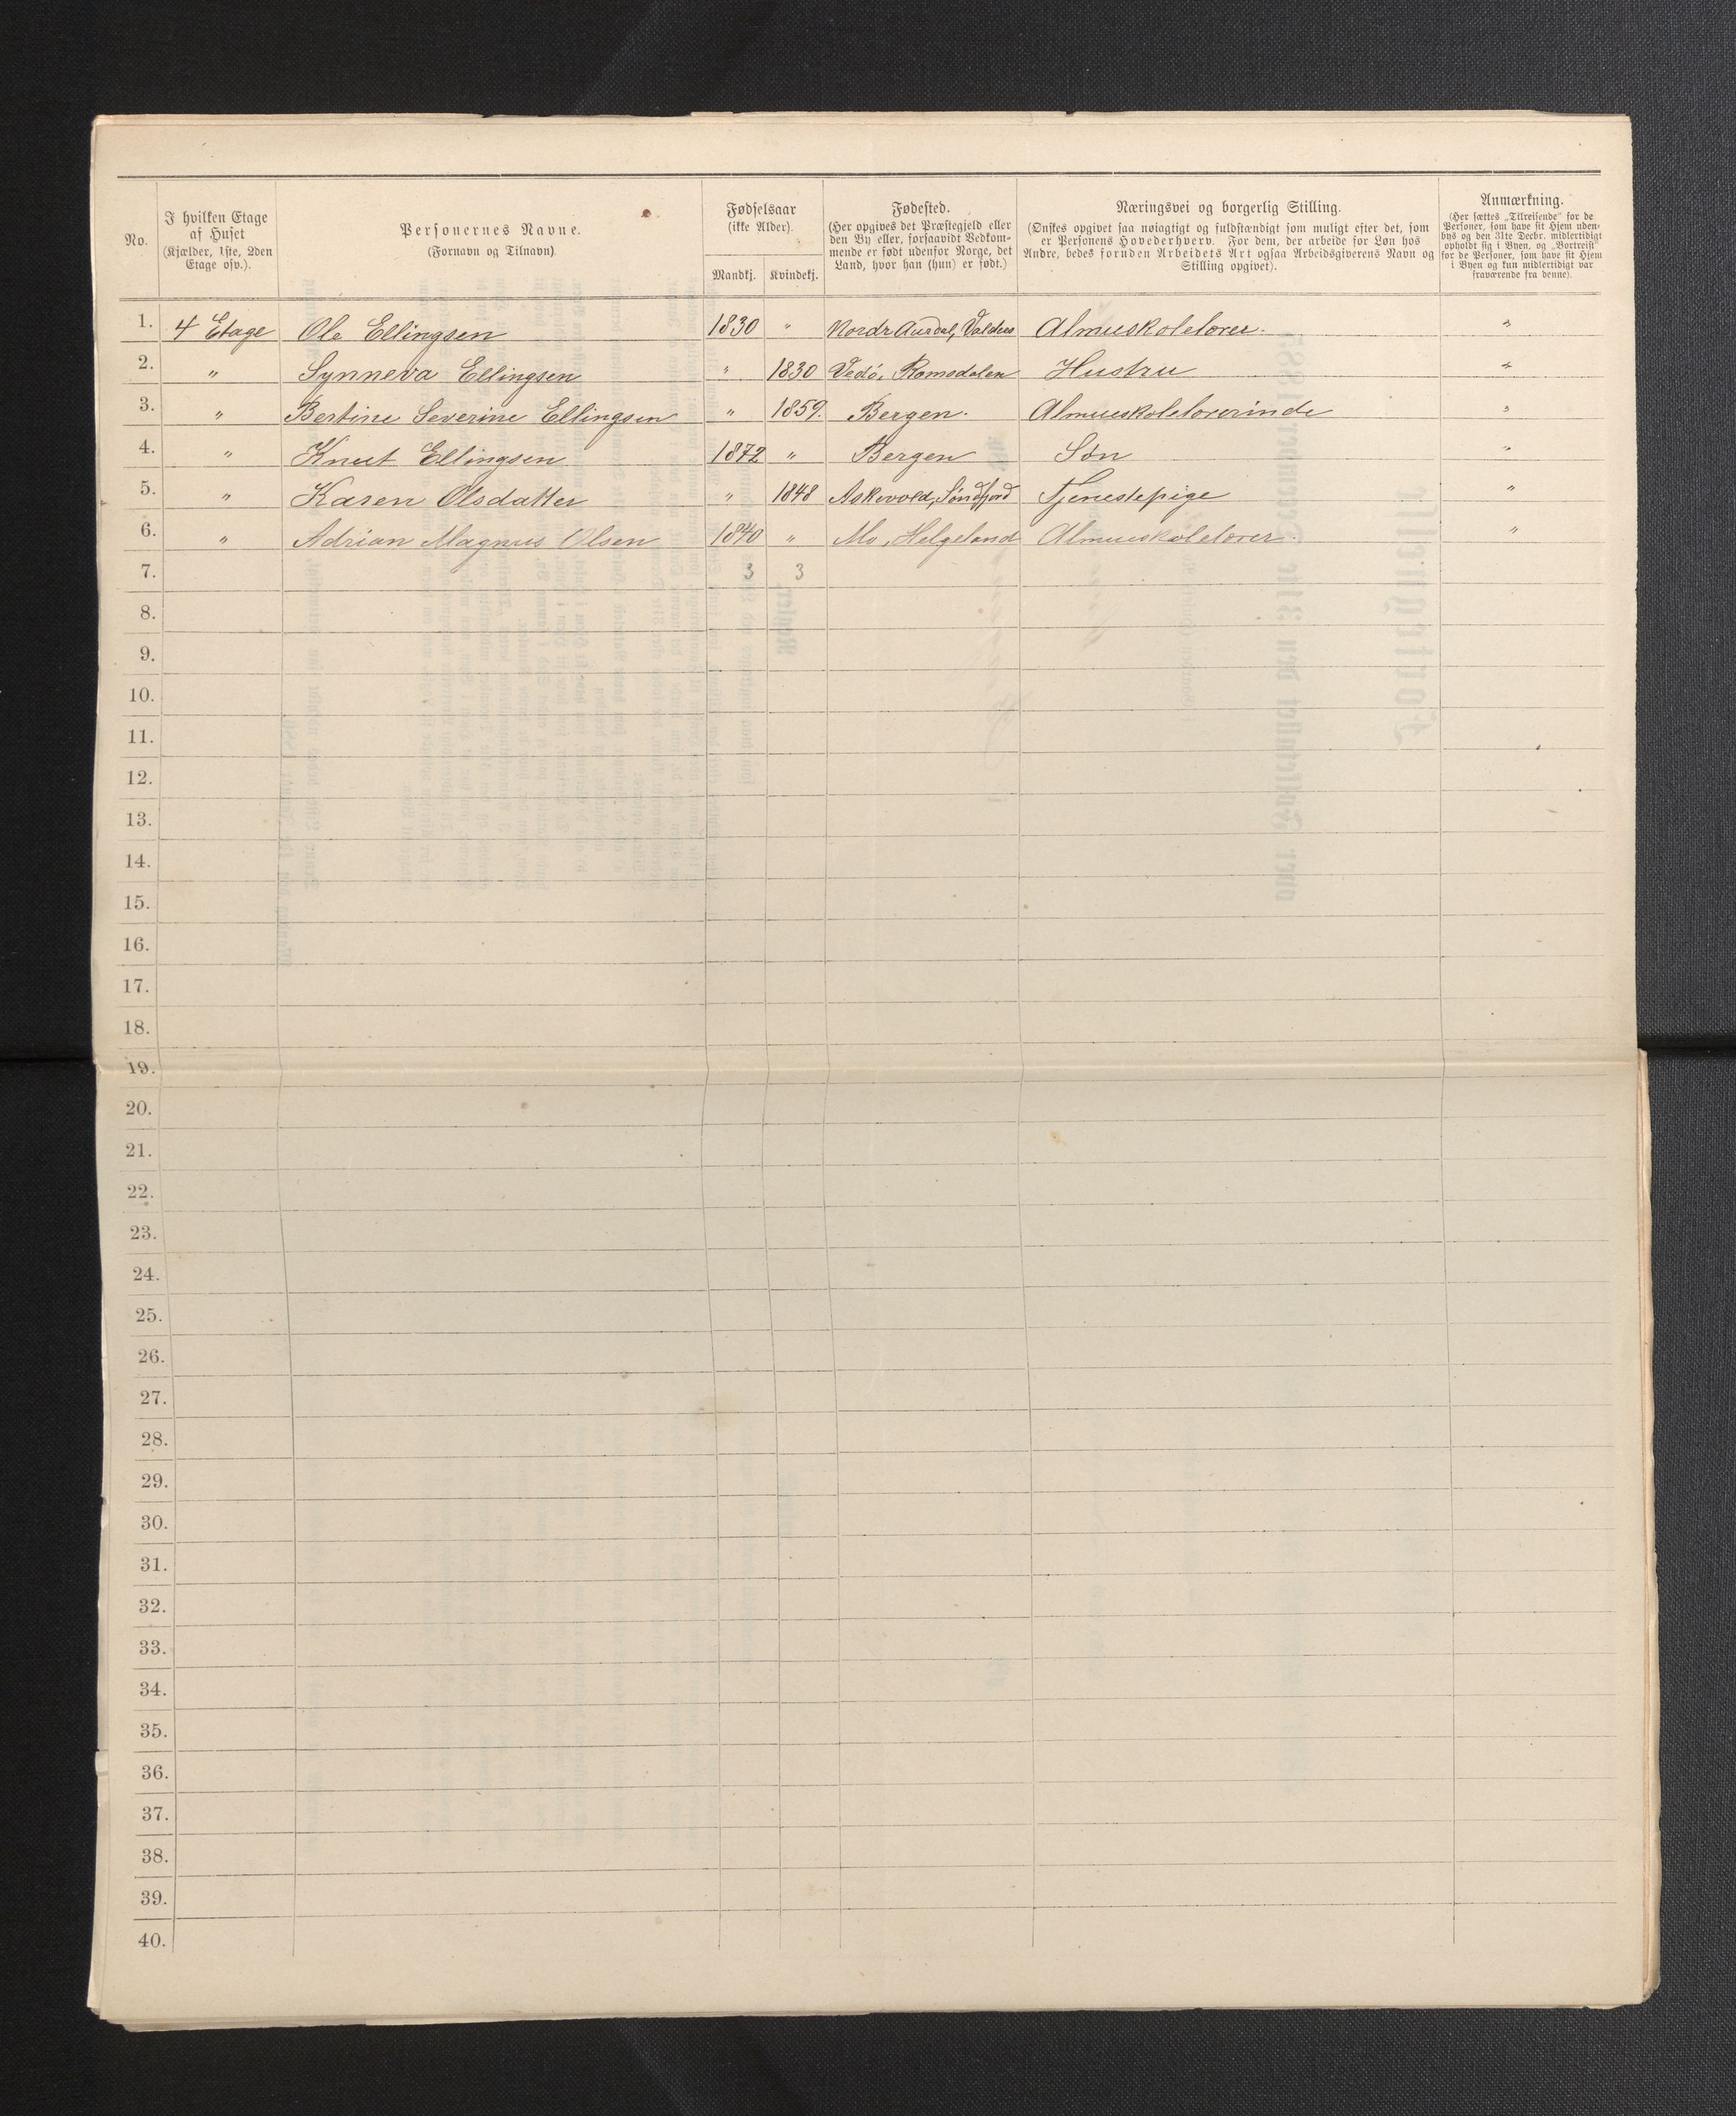 No.
I hvilken Etage
af Huset
(Kjælder, 1ste, 2den
Etage osv.).
Personernes Navne.
(Fornavn og Tilnavn)
Fødselsaar
(ikke Alder).
Mandkj. Kvindekj.
Fødested.
(Her opgives det Præstegjeld eller
den By eller, forsaavidt Vedkom-
mende er født udenfor Norge, det
Land, hvor han (hun) er født.)
Næringsvei og borgerlig Stilling.
(Ønskes opgivet saa nøiagtigt og fuldstændigt som muligt efter det, som
er Personens Hovederhverv. For dem, der arbeide for Løn hos
Andre, bedes foruden Arbeidets Art ogsaa Arbeidsgiverens Navn og
Stilling opgivet).
Anmærkning.
(Her sættes „Tilreisende" for de
Personer, som have sit Hjem uden-
bys og den 31te Decbr. midlertidigt
opholdt sig i Byen, og „Bortreist"
for de Personer, som have sit Hjem
i Byen og kun midlertidigt var
fraværende fra denne).
1. 4 Etage Ole Ellingsen 1830 " Nordr Aurdal, Valders Almueskolelærer. "
2. " Synneva Ellingsen " 1830 Vedø, Romsdalen Hustru "
3. " Bertine Severine Ellingsen " 1859. Bergen. Almueskolelærerinde "
4. " Knut Ellingsen 1872 " Bergen Søn "
5. " Karen Olsdatter " 1848 Askevold, Søndfjord Tjenestepige "
6. " Adrian Magnus Olsen 1840 " Mo, Helgeland Almueskolelærer. "
7. 3 3
8.
9.
10.
11.
12.
13.
14.
15.
16.
17.
18.
19.
20.
21.
22.
23.
24.
25.
26.
27.
28.
29.
30.
31.
32.
33.
34.
35.
36.
37.
38.
39.
40.